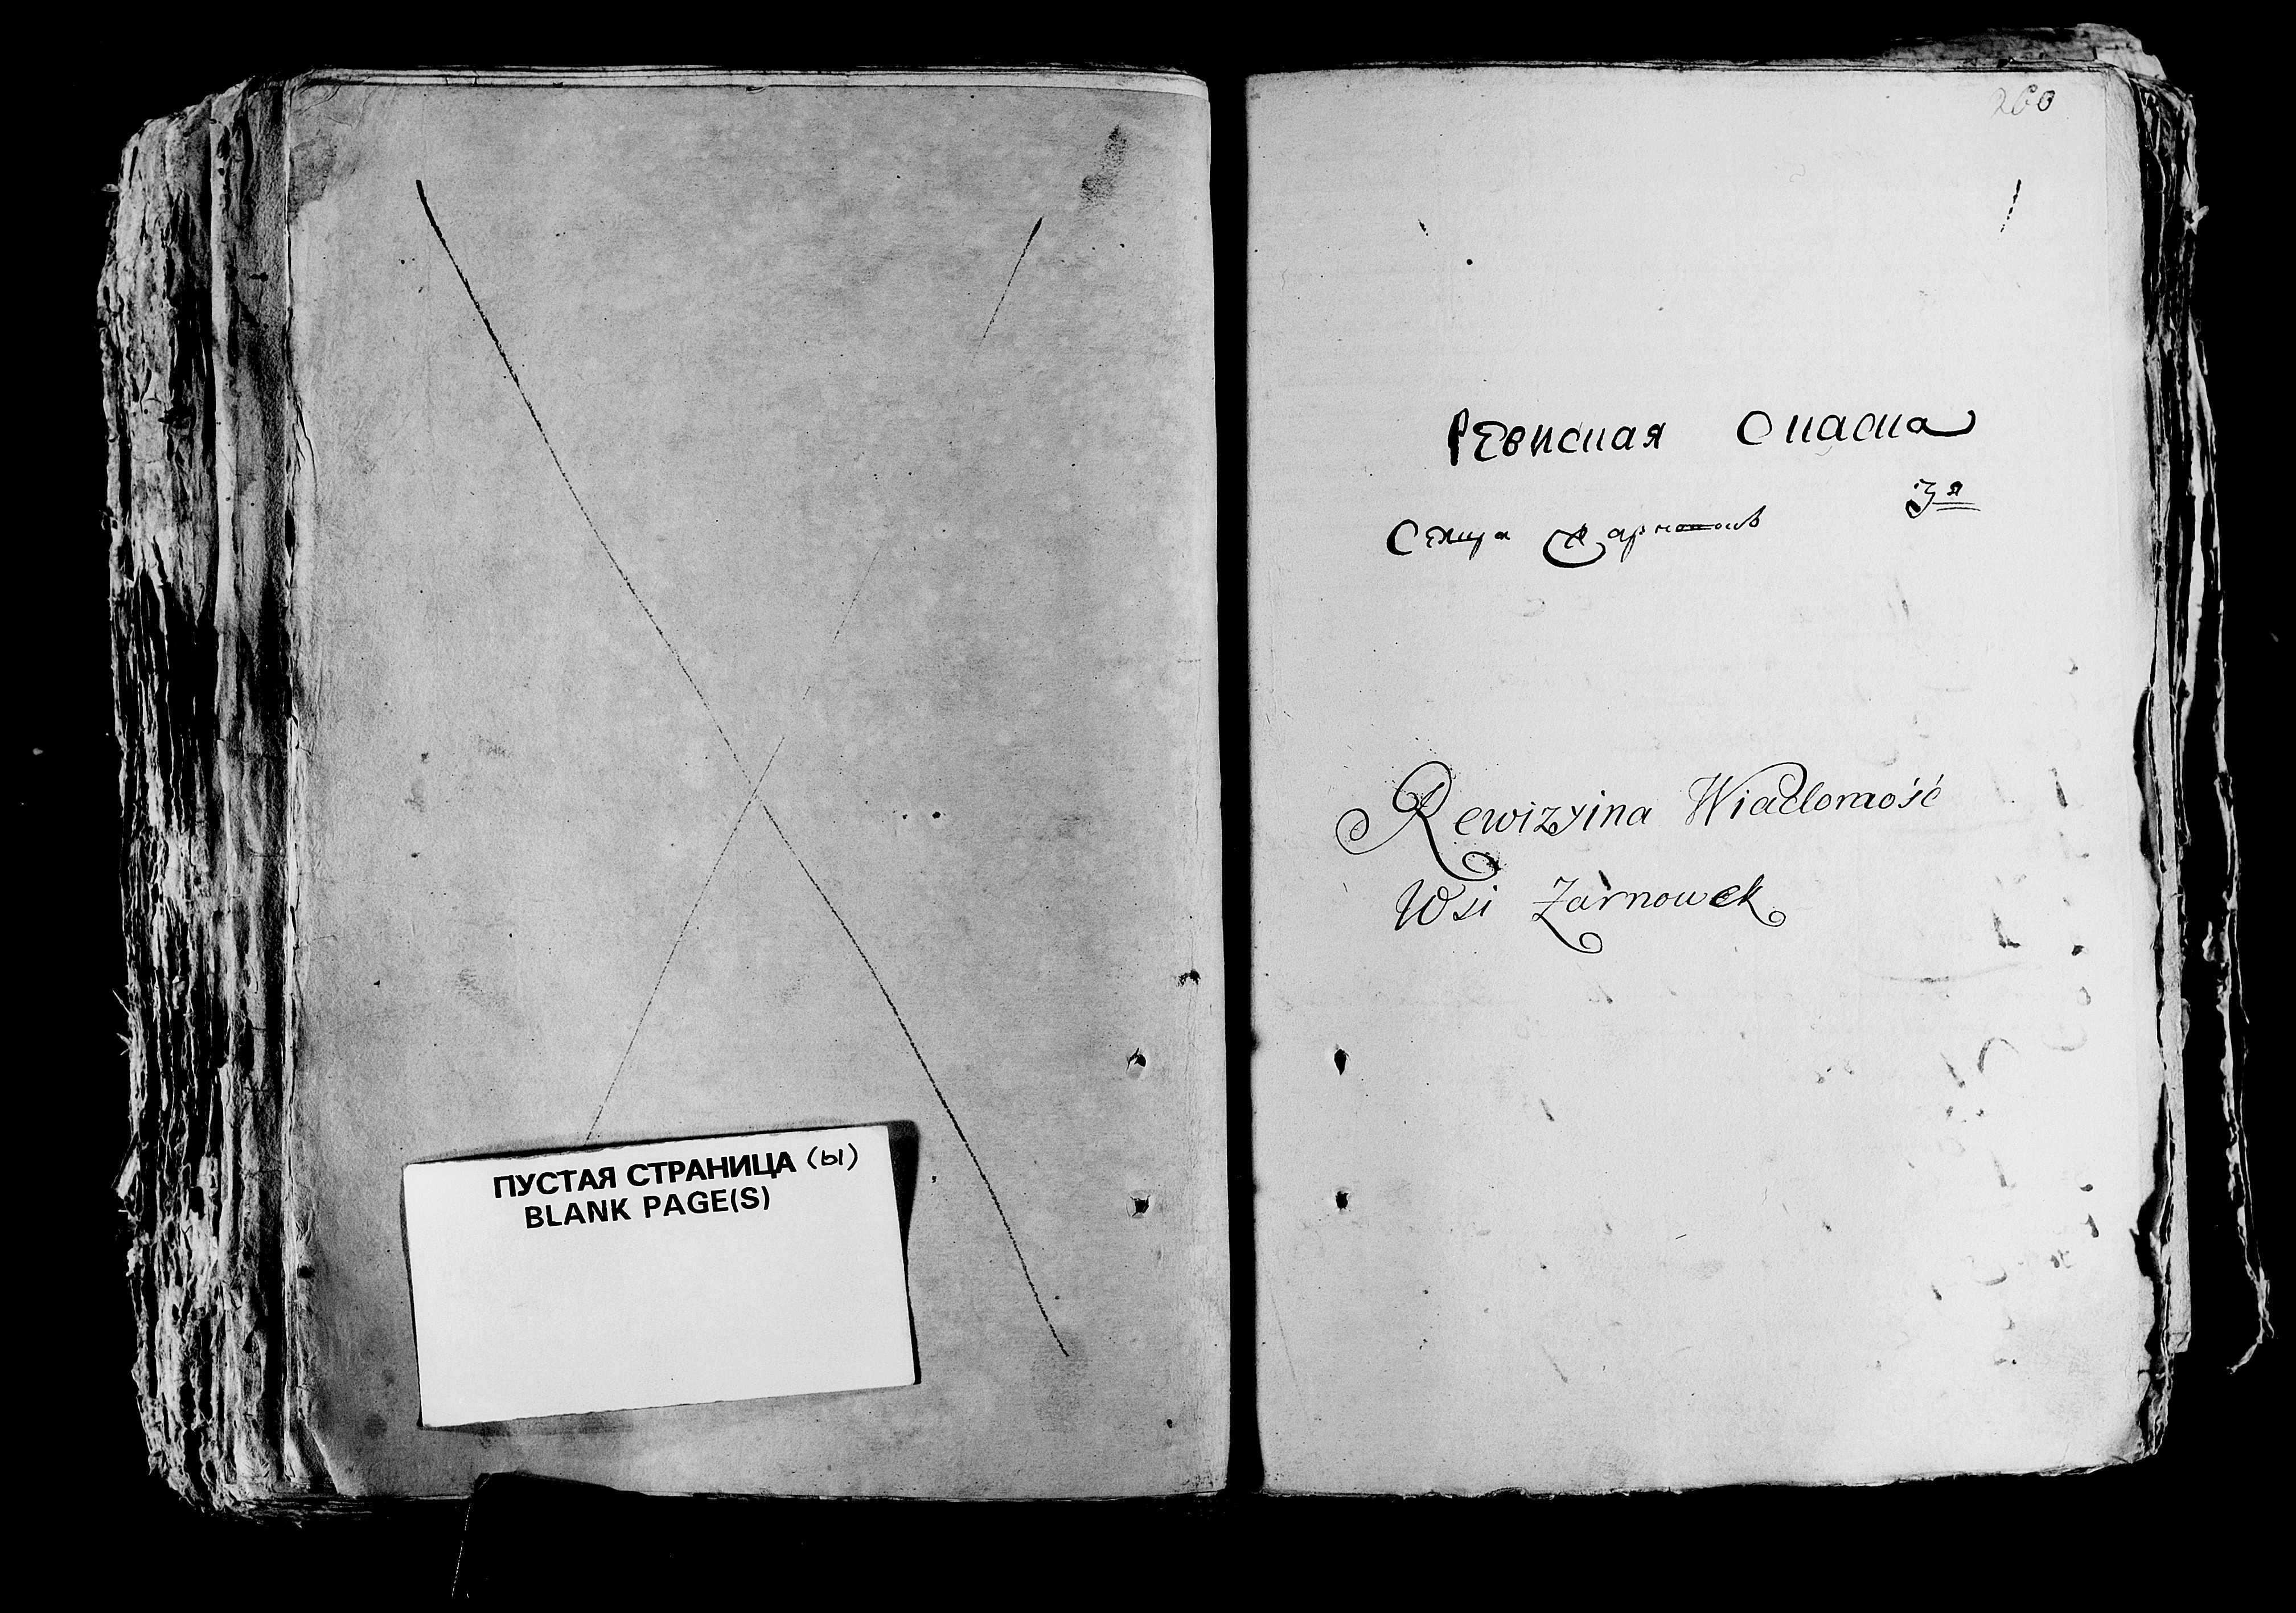 ПУСТАЯ СТРАНИЦА (ы)
BLANK PAGE(S)
260
Ревиская Скаска
3я
Села
Rewizyina Wiadomość
Wsi Żarnowek